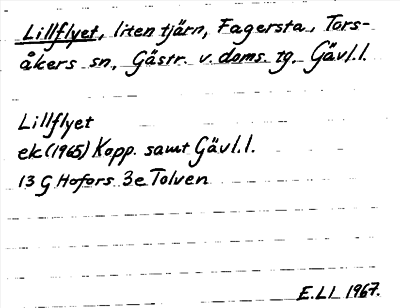 Lillflyet, liten tjärn, Fagersta, Tors-
åkers sn, Gästr. v. doms. tg. Gävl. l.
Lillflyet
ek (1965) Kopp. samt Gävl. l.
13 G Hofors 3e Tolven
E. Ll 1967.